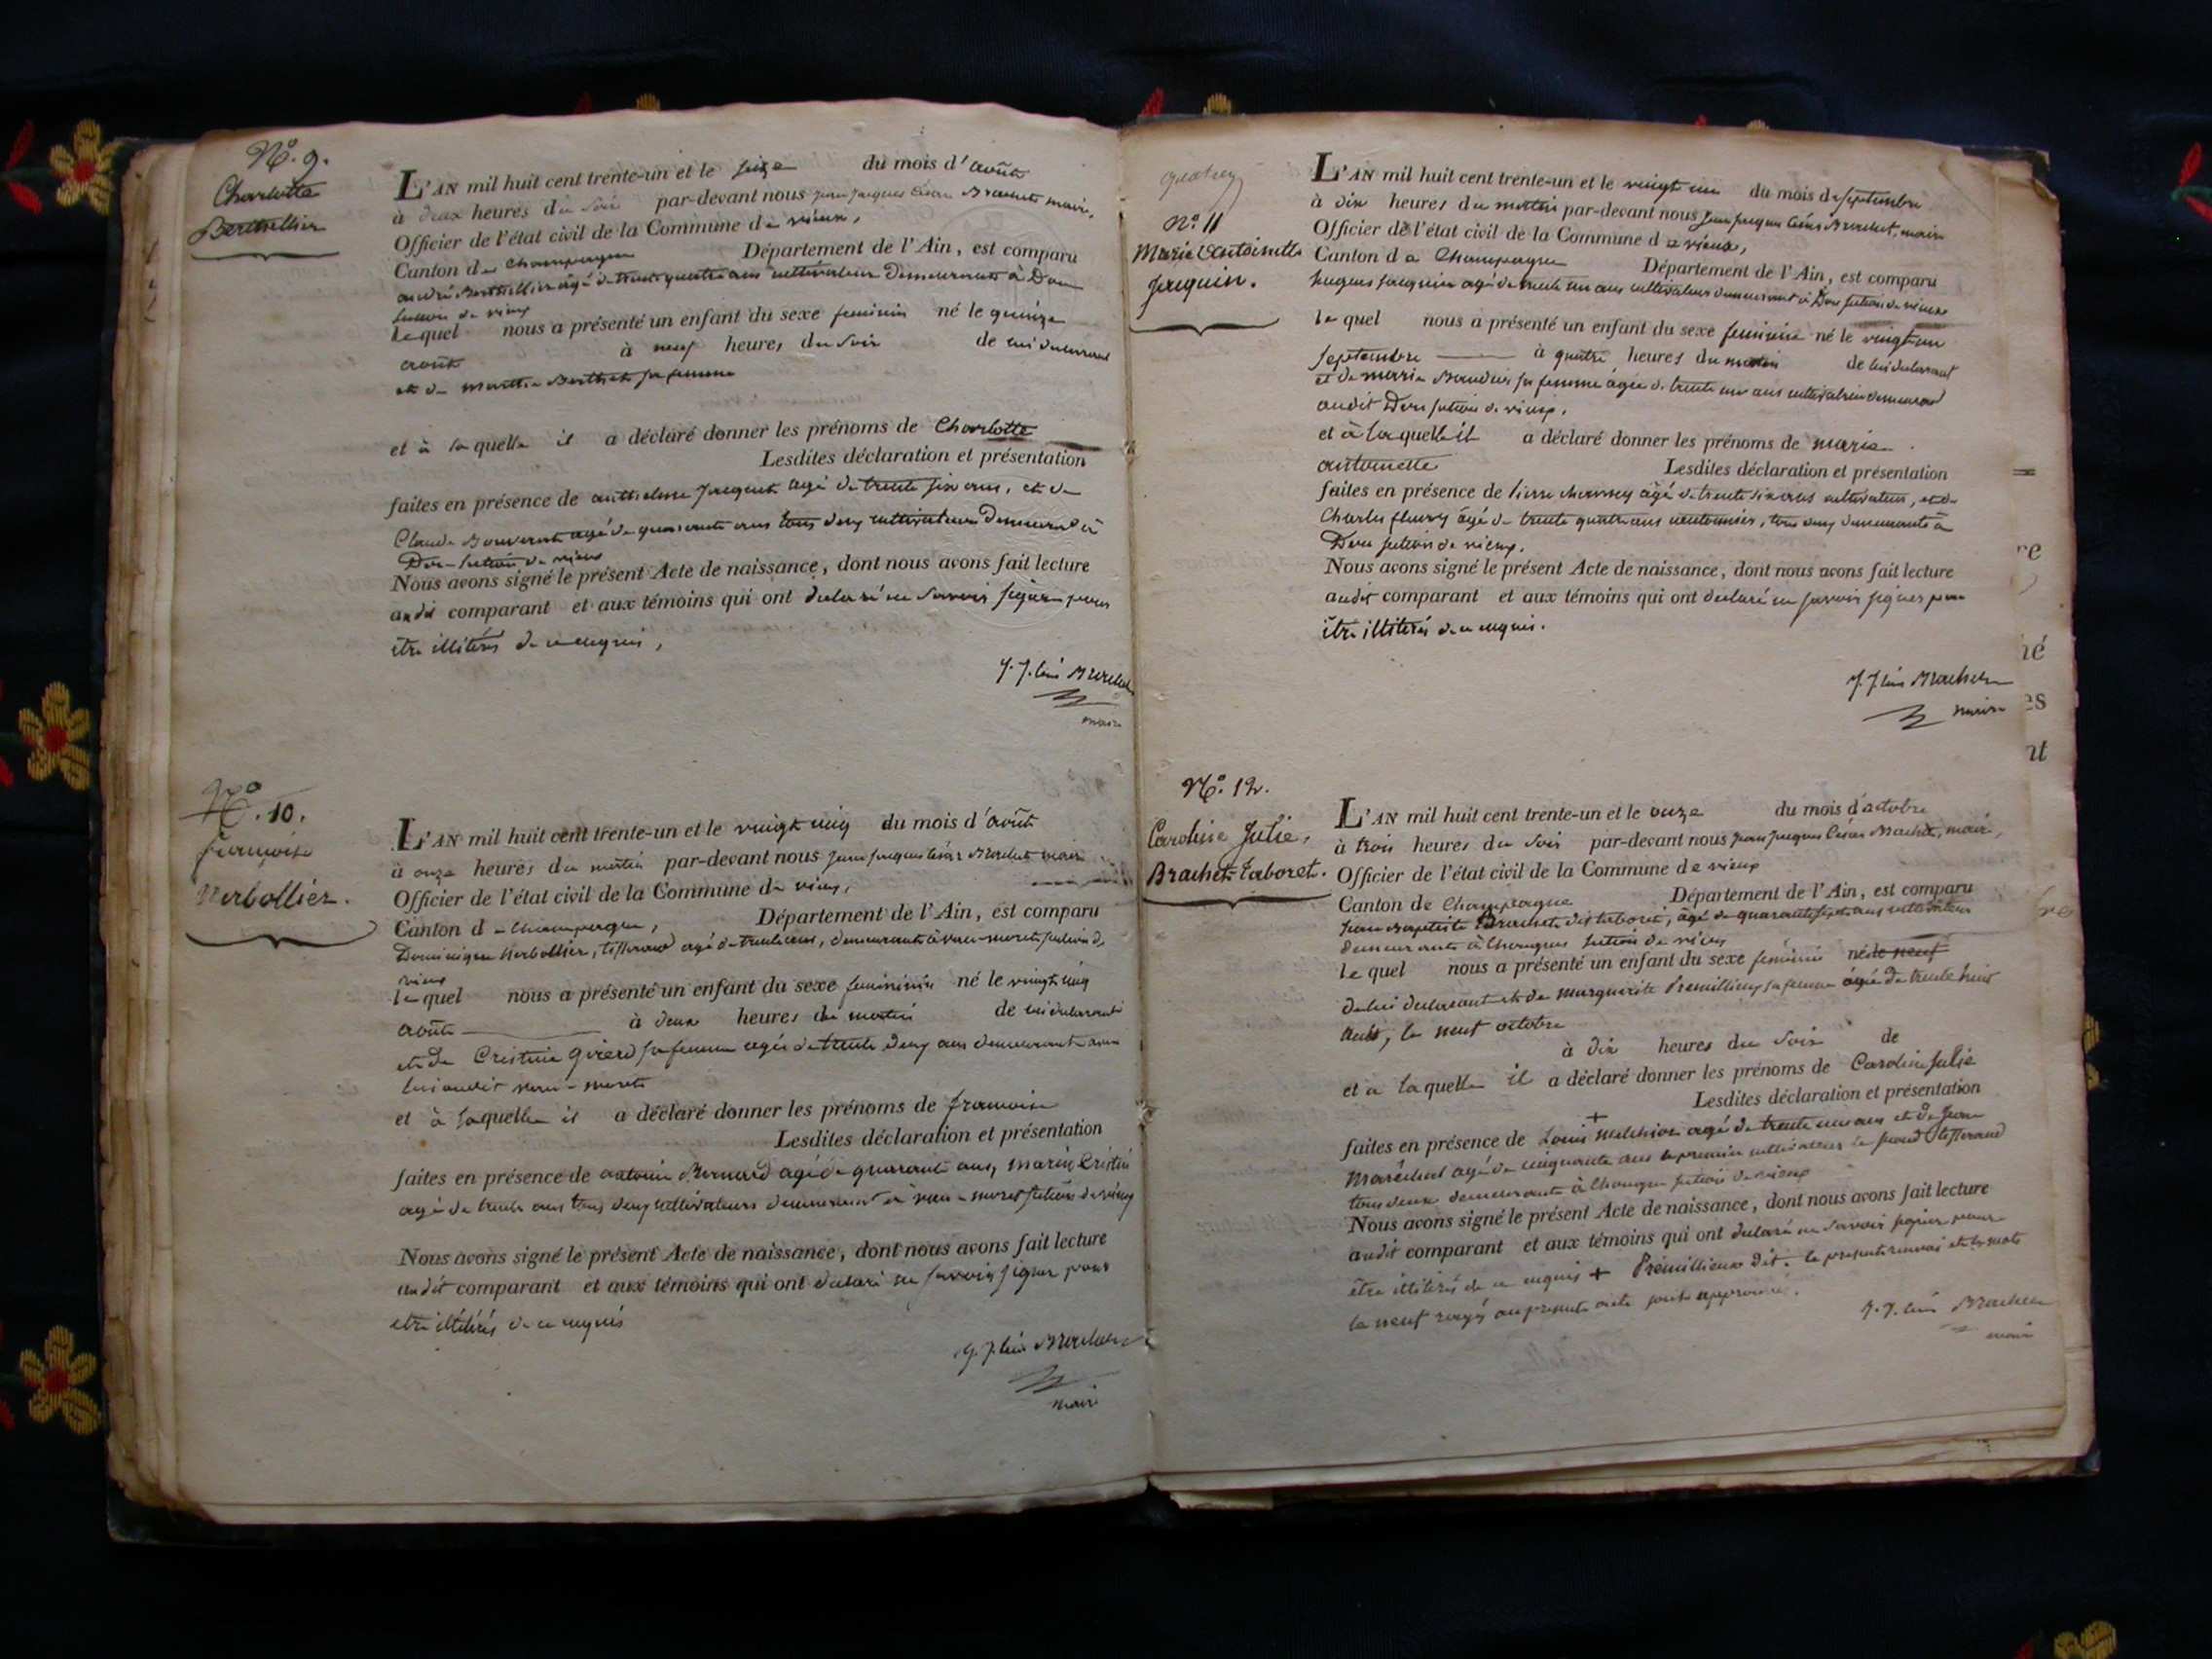 N.o 9.
Charlotte
Berthellier
L'AN mil huit cent trente-un et le seize du mois d'août
à deux heures du soir par-devant nous jean jacques César Brachet maire,
Officier de l'état civil de la Commune de vieux,
Canton de Champagne Département de l'Ain, est comparu
andré Berthellier agé de trente quatre ans cultivateur demeurant à Don
section de vieux
lequel nous a présenté un enfant du sexe feminin né le quinze
août à neuf heures du soir de lui déclarant
et de Berthet sa femme
et à laquelle il a déclaré donner les prénoms de Charlotte
Lesdites déclaration et présentation
faites en présence de anthelme agé de trente six ans, et de
Claude Bouveret agé de quarante ans tous deux cultivateurs demeurant à
Don section de vieux
Nous avons signé le présent Acte de naissance, dont nous avons fait lecture
audit comparant et aux témoins qui ont déclaré ne savoir signer pour
etre illitérés de ce enquis,
J. J. César Brachet
maire
N.o 10.
françoise
Verbollier.
L'AN mil huit cent trente-un et le vingt cinq du mois d'août
à onze heures du matin par-devant nous jean jacques César Brachet maire
Officier de l'état civil de la Commune de vieux,
Canton de Champagne, Département de l'Ain, est comparu
Dominique Verbollier, tisserand agé de trente ans, demeurant à section de
vieux
lequel nous a présenté un enfant du sexe feminin né le vingt cinq
août à deux heures du matin de lui déclarant
et de Cristine girerd sa femme agée de trente deux ans demeurant avec
lui audit
et à laquelle il a déclaré donner les prénoms de françoise
Lesdites déclaration et présentation
faites en présence de antoine Bernard agé de quarante ans, marin Cristin
agé de trente ans tous deux cultivateurs demeurant à section de vieux
Nous avons signé le présent Acte de naissance, dont nous avons fait lecture
audit comparant et aux témoins qui ont déclaré ne savoir signer pour
etre illitérés de ce enquis
J. J. César Brachet
maire
N.o 11
Marie Antoinette
Jacquin.
L'AN mil huit cent trente-un et le vingt un du mois de septembre
à dix heures du matin par-devant nous jean jacques César Brachet, maire
Officier de l'état civil de la Commune de vieux,
Canton de Champagne Département de l'Ain, est comparu
hugues jacquin agé de trente un ans cultivateur demeurant à Don section de vieux
lequel nous a présenté un enfant du sexe feminin né le vingt un
septembre à quatre heures du matin de lui déclarant
et de marie sa femme agée de trente un ans cultivatrice demeurant
audit Don section de vieux.
et à laquelle il a déclaré donner les prénoms de marie
antoinette Lesdites déclaration et présentation
faites en présence de pierre agé de trente six ans cultivateur, et de
Charles fleury âgé de trente quatre ans cantonnier, tous deux demeurants à
Don section de vieux.
Nous avons signé le présent Acte de naissance, dont nous avons fait lecture
audit comparant et aux témoins qui ont déclaré ne savoir signer pour
être illitérés de ce enquis.
J. J. César Brachet
maire
N.o 12.
Caroline Julie,
Brachet Taboret.
L'AN mil huit cent trente-un et le onze du mois d'octobre
à trois heures du soir par-devant nous jean jacques César Brachet, maire,
Officier de l'état civil de la Commune de vieux
Canton de Champagne Département de l'Ain, est comparu
jean Baptiste Brachet dit taboret, âgé de quarante sept ans cultivateur
demeurant à Chongnes section de vieux
lequel nous a présenté un enfant du sexe feminin né le neuf
de lui déclarant et de marguerite Premillieux sa femme âgée de trente huit
ans, le neuf octobre
à dix heures du soir de
et à laquelle il a déclaré donner les prénoms de Caroline Julie
Lesdites déclaration et présentation
+
faites en présence de Louis melchior agé de trente un ans et de jean
Maréchal agé de cinquante ans le premier cultivateur le second tisserand
tous deux demeurants à Chongnes section de vieux
Nous avons signé le présent Acte de naissance, dont nous avons fait lecture
audit comparant et aux témoins qui ont déclaré ne savoir signer pour
être illitérés de ce enquis + Premillieux dit. le présent renvoi et les mots
le neuf rayés au présent acte sont approuvés.
J. J. César Brachet
maire